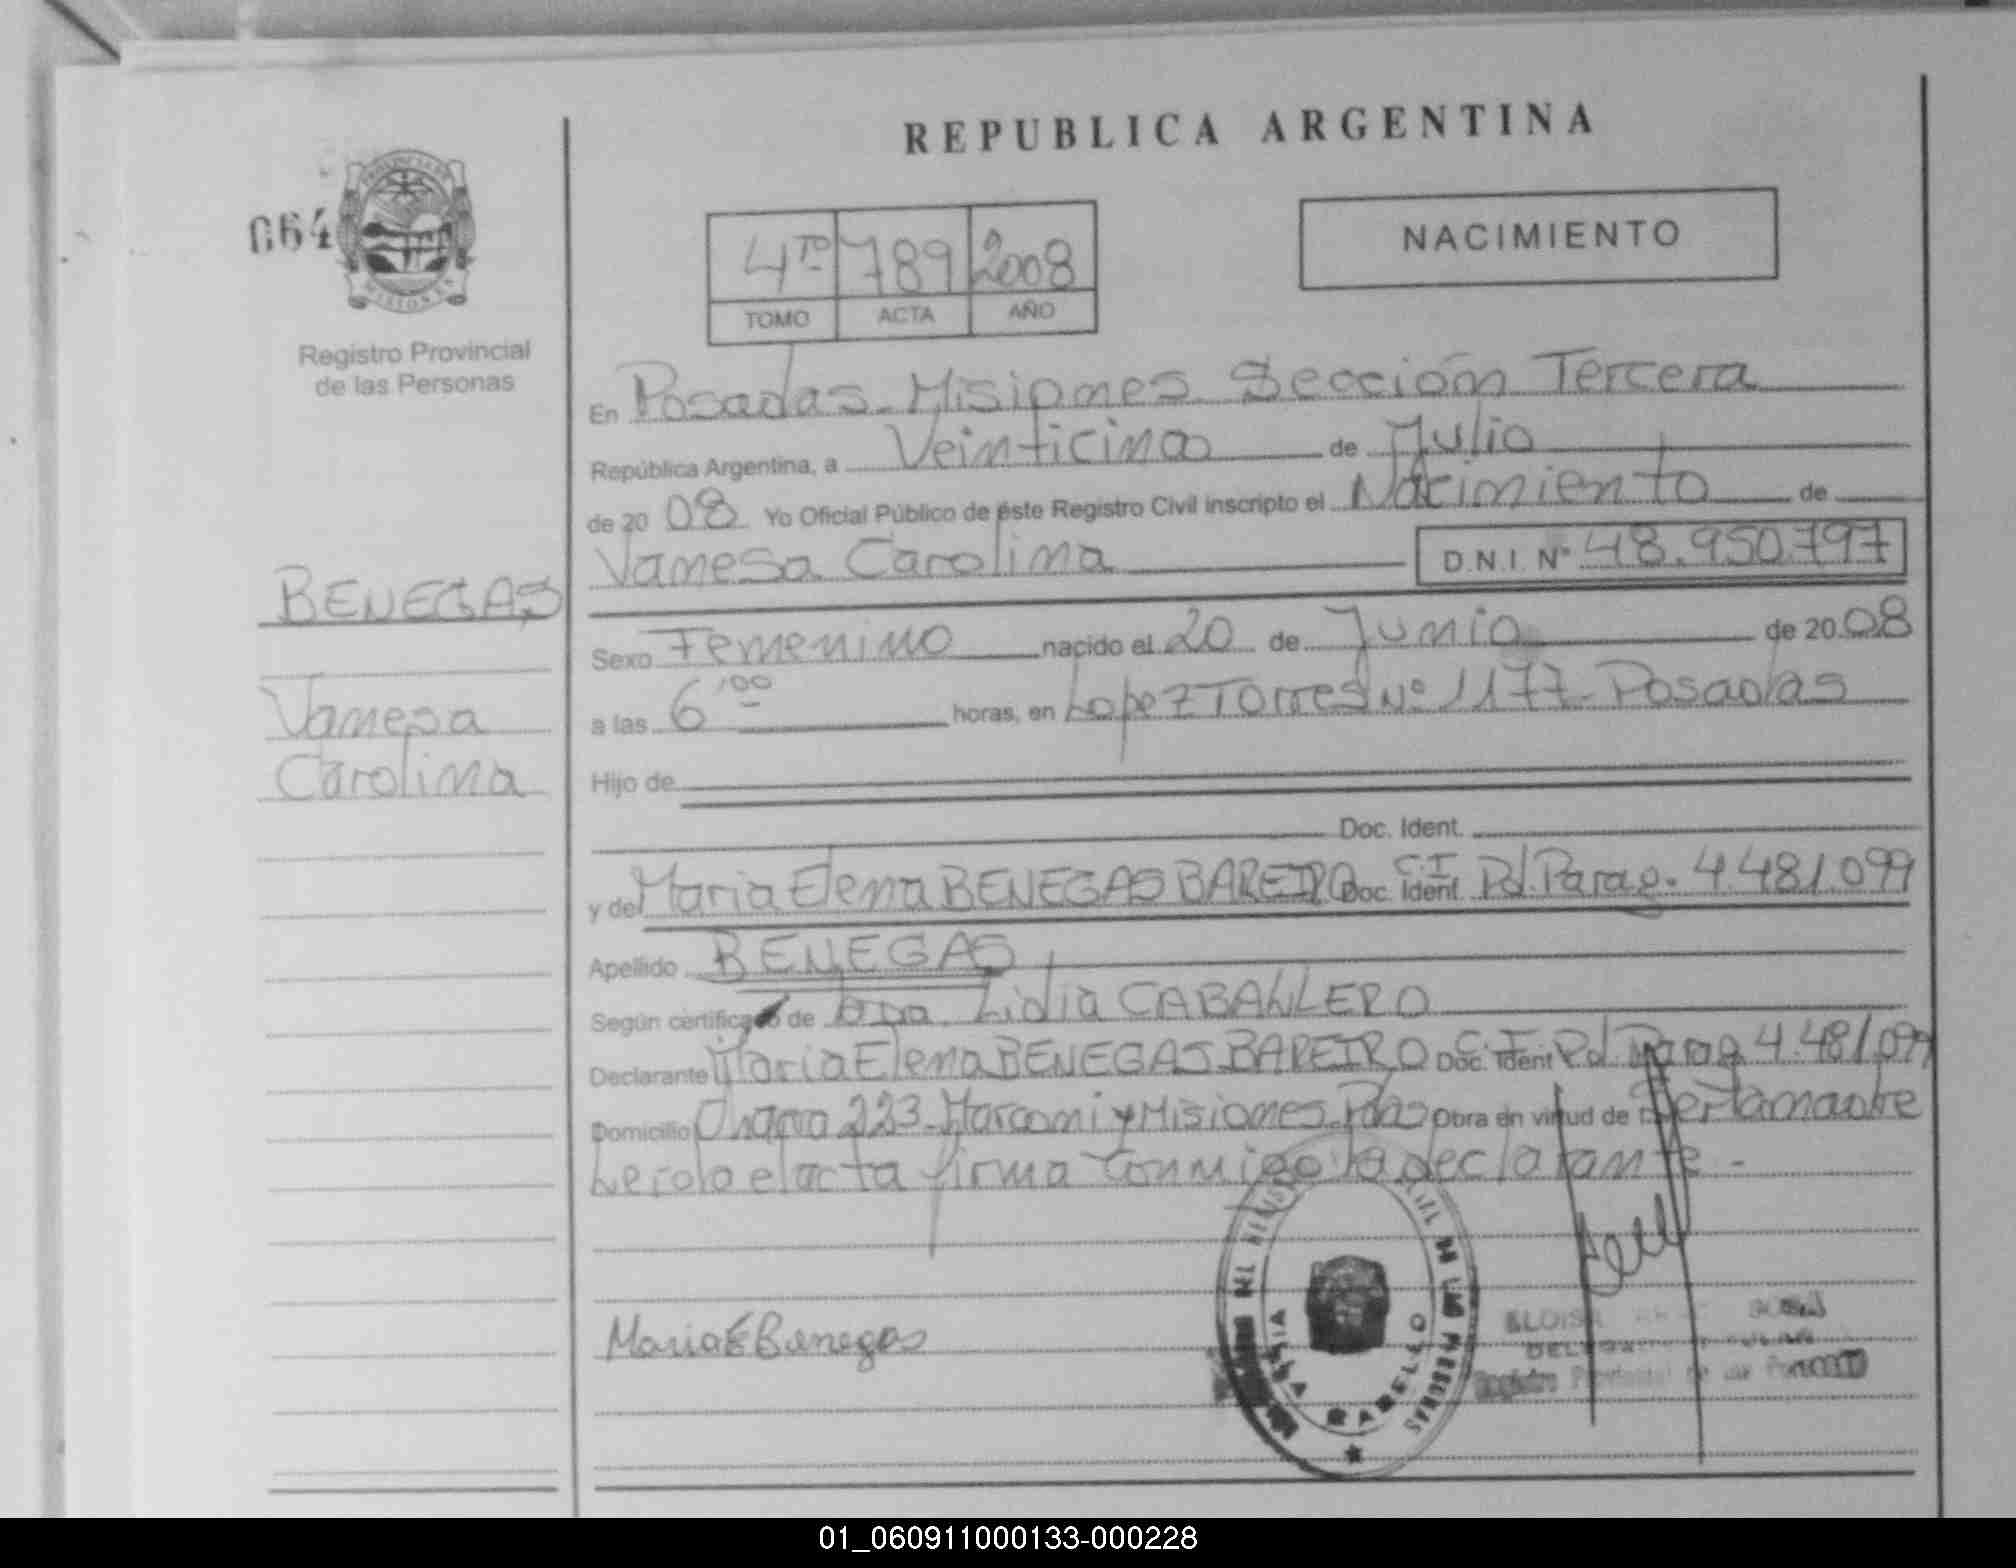 REPUBLICA ARGENTINA
064
PROVINCIA DE
MISIONES
Registro Provincial
de las Personas
4TO 789 2008
TOMO ACTA AÑO
NACIMIENTO
En Posadas-Misiones Sección Tercera
República Argentina, a Veinticinco de Julio
de 20 08 Yo Oficial Público de éste Registro Civil inscripto el Nacimiento de
Vanesa Carolina D.N.I. Nº 48.950.797
BENEGAS
Vanesa
Carolina
Sexo Femenino nacido el 20 de Junio de 20 08
a las 6,00 horas, en Lopez Torres Nº 1177-Posadas
Hijo de
Doc. Ident.
y de Maria Elena BENEGAS BAREIRO Doc. Ident. C.I. Pol. Parag. 4.481.099
Apellido BENEGAS
Según certificado de Dra. Lidia CABALLERO
Declarante Maria Elena BENEGAS BAREIRO Doc. Ident C.I. Pol Parag. 4.481.099
Domicilio Chacra 223-Marconi y Misiones-Pdas Obra en virtud de ser la madre
Leida el acta firma conmigo la declarante-
Maria E Benegas
RABELLO
ELOISA
Registro Provincial de las
01_060911000133-000228